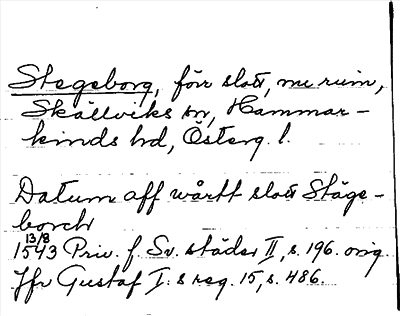 Stegeborg, förr slott, nu ruin,
Skällviks sn, Hammar-
kinds hd, Österg. l.
Datum aff wårtt slott Stäge-
borch
13/8
1543 Priv. f. Sv. städer II, s. 196. orig.
Jfr Gustaf I:s reg. 15, s. 486.